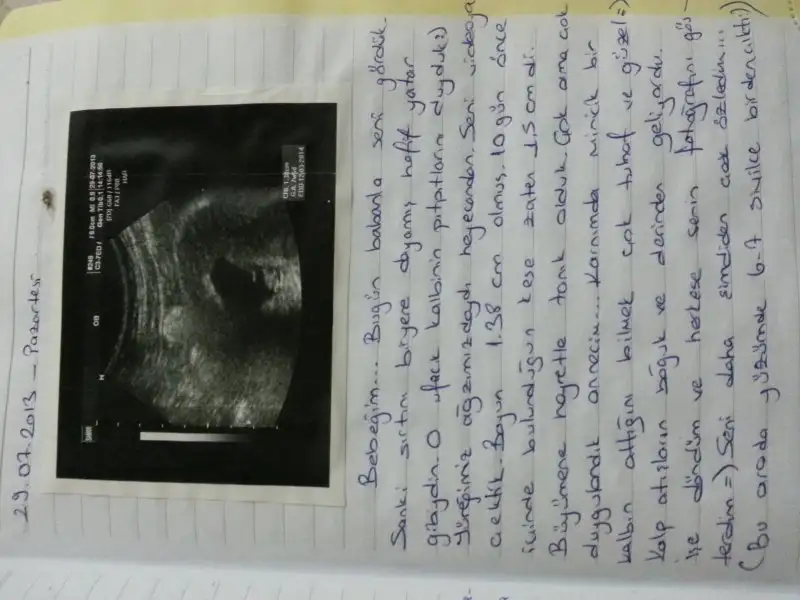 29.07.2013 - Pazartesi
29-07-2013
14:14:56
Bebeğim... Bugün babanla seni gördük.
Sanki sırtını biryere dayamış hafif yatar
gibiydin. O ufacık kalbinin pıtpıtlarını duyduk:)
Yüreğimiz ağzımızdaydı heyecandan. Seni videoya
çektik. Boyun 1.38 cm olmuş. 10 gün önce
içinde bulunduğun kese zaten 1,5 cm di.
Büyümene hayretle tanık olduk. Çok ama çok
duygulandık annecim... Karnımda minicik bir
kalbin attığını bilmek çok tuhaf ve güzel =)
Kalp atışların boğuk ve derinden geliyordu.
İşe döndüm ve herkese senin fotoğrafını gös-
terdim =) Seni daha şimdiden çok özledim...
(Bu arada yüzümde 6-7 sivilce birden çıktı:))